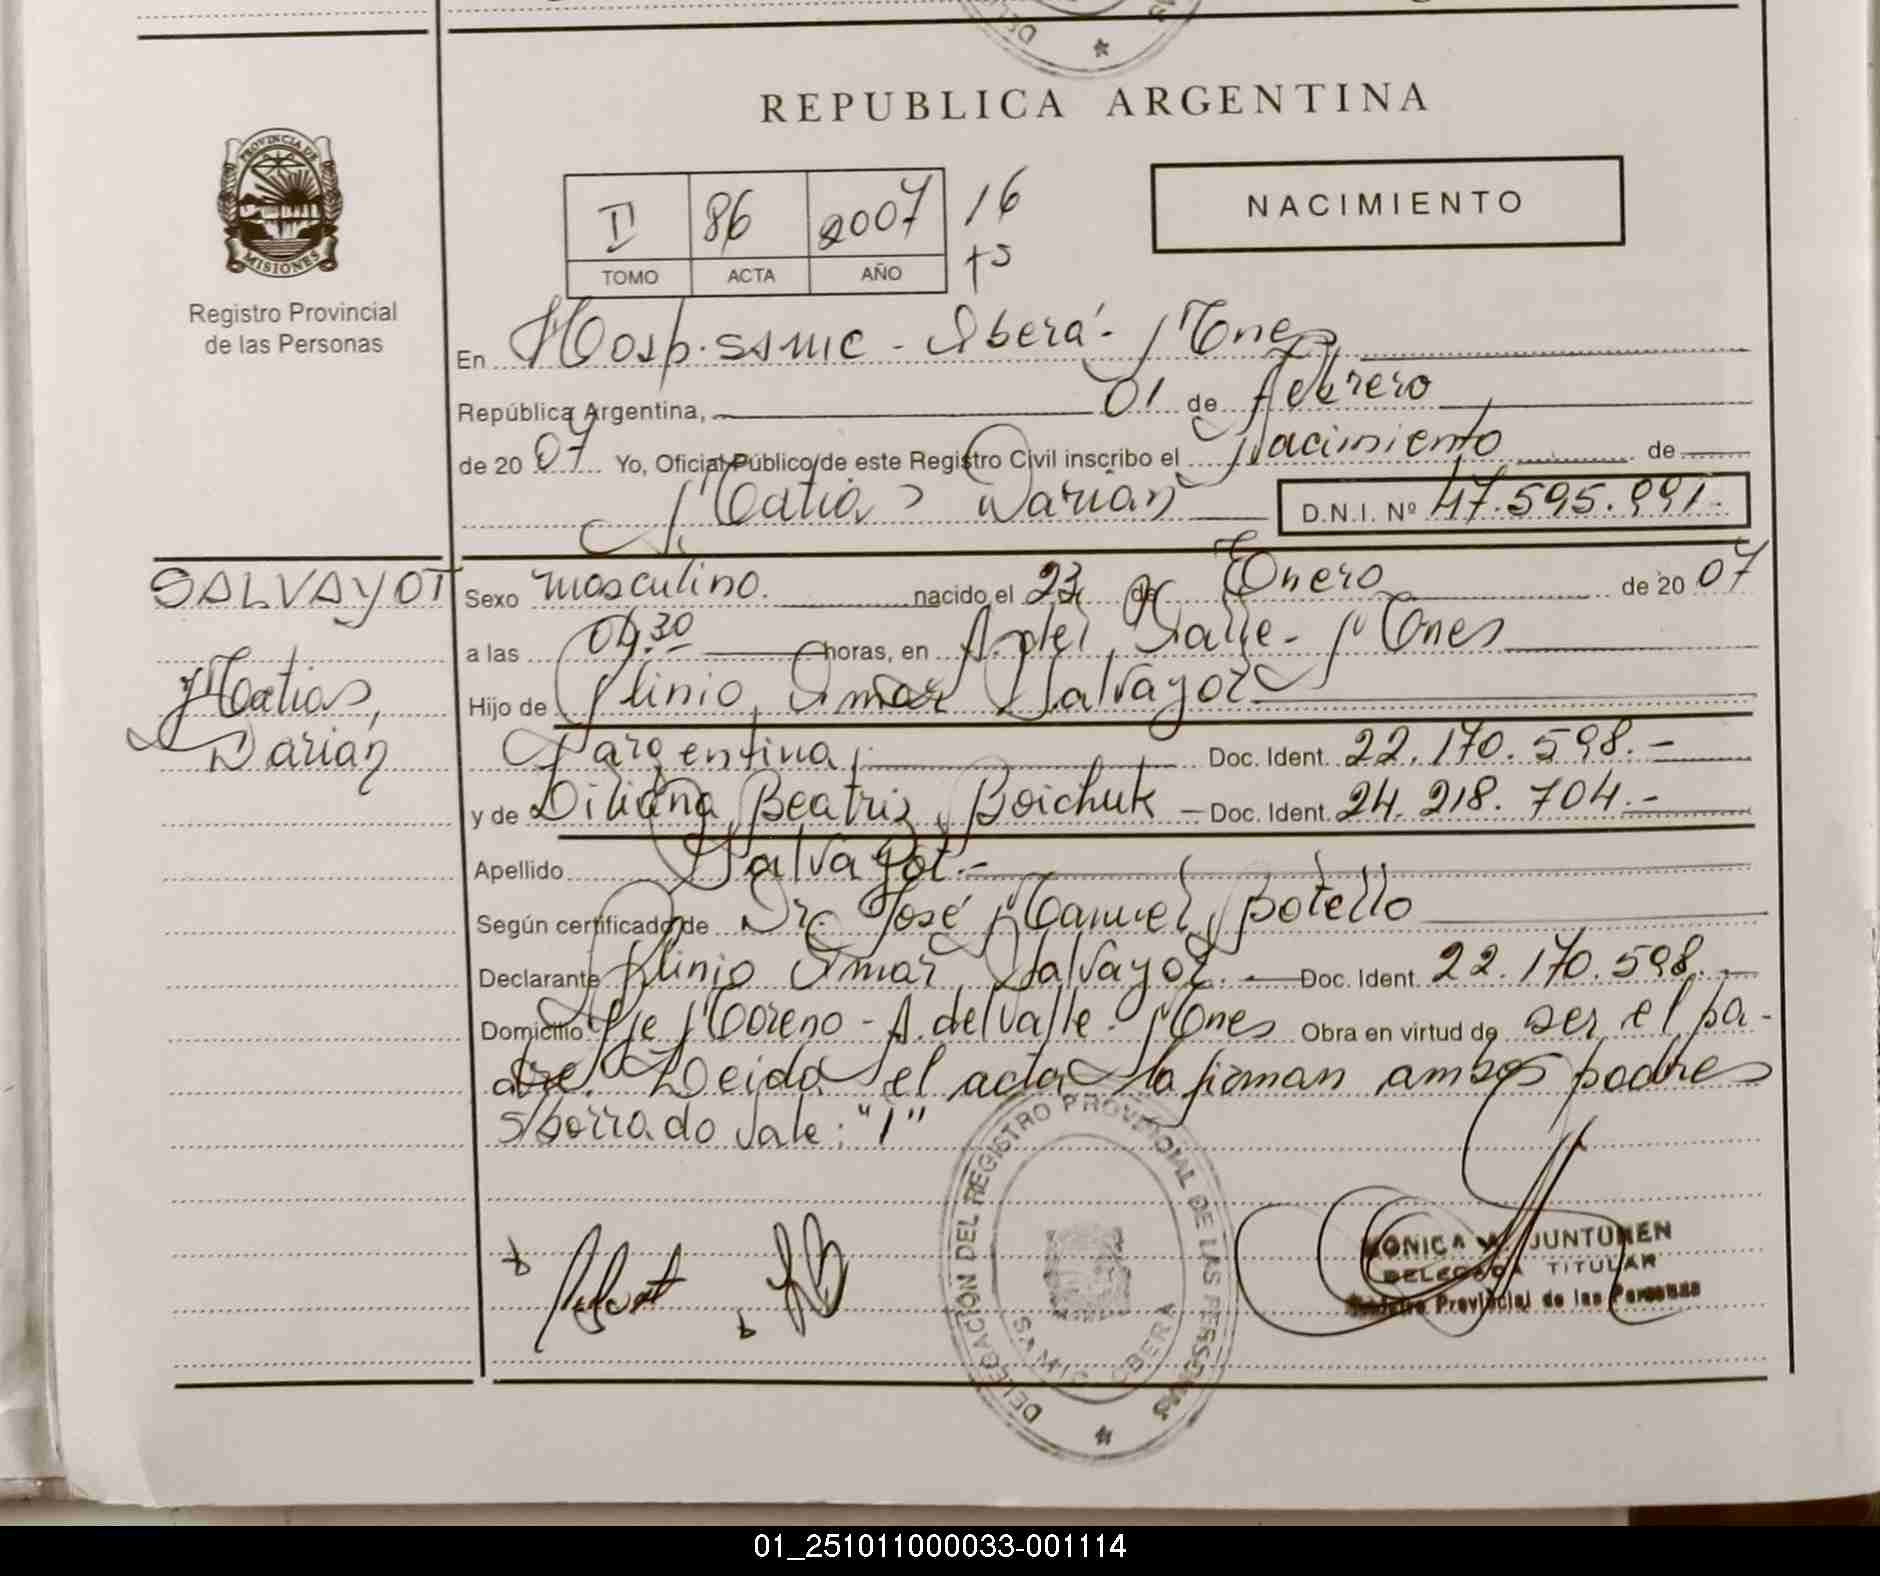 REPUBLICA ARGENTINA
PROVINCIA DE
MISIONES
Registro Provincial
de las Personas
II 86 2007 16
TOMO ACTA AÑO
NACIMIENTO
En Hosp. SSMIC - Oberá - Mnes
República Argentina, 01 de Febrero
de 20 07 Yo, Oficial Público de este Registro Civil inscribo el Nacimiento de
Matias Darian D.N.I. Nº 47.595.991.-
SALVAYOT
Matias,
Darian
Sexo masculino. nacido el 23 de Enero de 20 07
a las 04.30 horas, en A. del Valle - Mnes
Hijo de Plinio Omar Salvayot
argentina Doc. Ident. 22.170.598.-
y de Liliana Beatriz Boichuk - Doc. Ident. 24.218.704.-
Apellido Salvayot.-
Según certificado de Dr. José Manuel Botello
Declarante Plinio Omar Salvayot. - Doc. Ident. 22.170.598.-
Domicilio Pje Moreno - A. del Valle - Mnes Obra en virtud de ser el pa-
dre. Leida el acta la firman ambos padres
s/borrado vale: "1"
DELEGACION DEL REGISTRO PROVINCIAL DE LAS PERSONAS
SAMIC OBERA
MONICA JUNTUNEN
DELEGADA TITULAR
Registro Provincial de las Personas
01_251011000033-001114